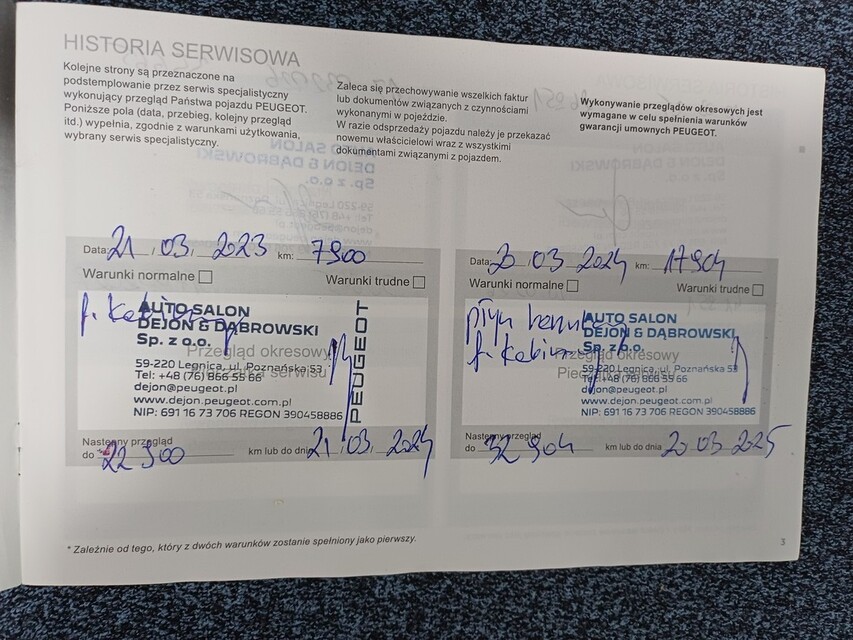 HISTORIA SERWISOWA
Kolejne strony są przeznaczone na
podstemplowanie przez serwis specjalistyczny
wykonujący przegląd Państwa pojazdu PEUGEOT.
Poniższe pola (data, przebieg, kolejny przegląd
itd.) wypełnia, zgodnie z warunkami użytkowania,
wybrany serwis specjalistyczny.
Zaleca się przechowywanie wszelkich faktur
lub dokumentów związanych z czynnościami
wykonanymi w pojeździe.
W razie odsprzedaży pojazdu należy je przekazać
nowemu właścicielowi wraz z wszystkimi
dokumentami związanymi z pojazdem.
Wykonywanie przeglądów okresowych jest
wymagane w celu spełnienia warunków
gwarancji umownych PEUGEOT.
Data: 21 / 03 / 2023 km: 7900
Warunki normalne Warunki trudne
AUTO SALON
DEJON & DĄBROWSKI
Sp. z o.o.
Przegląd okresowy
59-220 Legnica, ul. Poznańska 53
Tel: +48 (76) 866 55 66
dejon@peugeot.pl
www.dejon.peugeot.com.pl
NIP: 691 16 73 706 REGON 390458886
PEUGEOT
Następny przegląd
do 22 900 km lub do dnia 21 / 03 / 2024
Data: 20 / 03 2024 km: 17904
Warunki normalne Warunki trudne
płyn
AUTO SALON
DEJON & DĄBROWSKI
Sp. z o.o.
Przegląd okresowy
59-220 Legnica, ul. Poznańska 53
Tel: +48 (76) 866 55 66
dejon@peugeot.pl
www.dejon.peugeot.com.pl
NIP: 691 16 73 706 REGON 390458886
Następny przegląd
do 32 904 km lub do dnia 20 03 2025
* Zależnie od tego, który z dwóch warunków zostanie spełniony jako pierwszy.
3